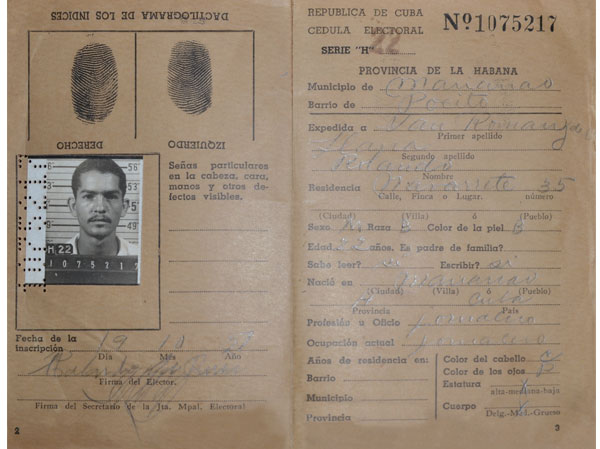 DACTILOGRAMA DE LOS INDICES
DERECHO
IZQUIERDO
H 22
1075217
Señas particulares
en la cabeza, cara,
manos y otros de-
fectos visibles.
Fecha de la
inscripción 19 10
Día Mes Año
Firma del Elector.
Firma del Secretario de la Jta. Mpal. Electoral
2
REPUBLICA DE CUBA
CEDULA ELECTORAL
SERIE "H" 22
Nº 1075217
PROVINCIA DE LA HABANA
Municipio de Marianao
Barrio de
Expedida a San Roman
Primer apellido
Segundo apellido
Rolando
Nombre
Residencia Navarrete 35
Calle, Finca o Lugar. número
(Ciudad) (Villa) ó (Pueblo)
Sexo M Raza B Color de la piel B
Edad 22 años. Es padre de familia?
Sabe leer? si Escribir? si
Nació en Marianao
(Ciudad) (Villa) ó (Pueblo)
Cuba
Provincia País
Profesión u Oficio jornalero
Ocupación actual jornalero
Años de residencia en:
Barrio
Municipio
Provincia
Color del cabello
Color de los ojos
Estatura X
alta-mediana-baja
Cuerpo X
Delg.-Med.-Grueso
3